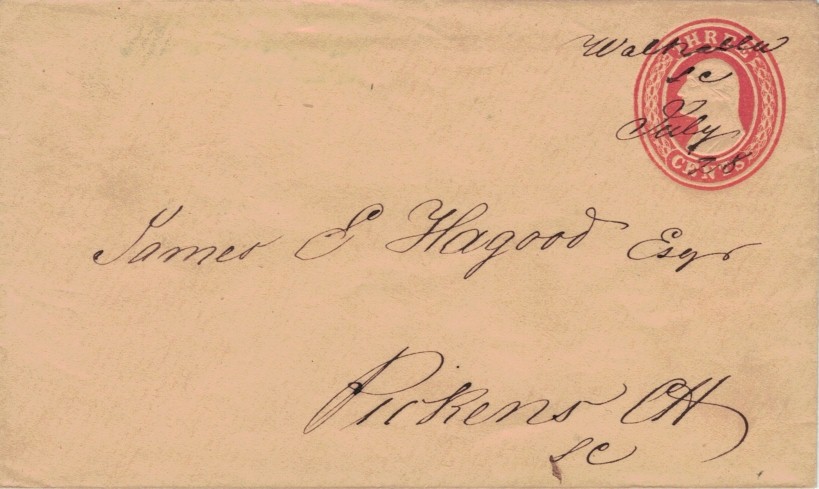 Walhalla
SC
July
28
THREE
CENTS
James E Hagood Esqr
Pickens CH
SC